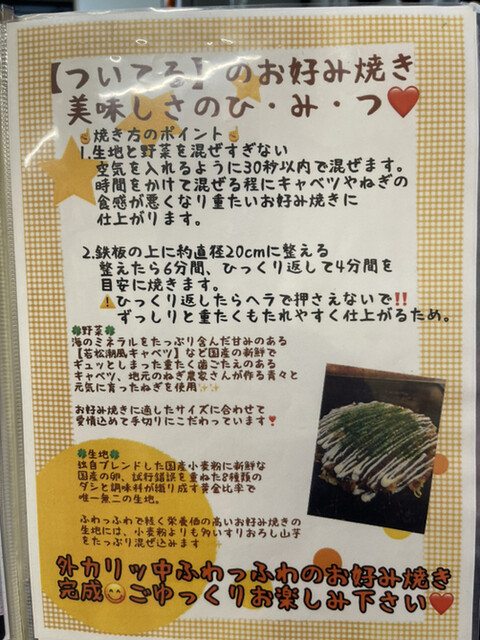 【ついてる】のお好み焼き
美味しさのひ・み・つ❤️
☝️焼き方のポイント☝️
1.生地と野菜を混ぜすぎない
空気を入れるように30秒以内で混ぜます。
時間をかけて混ぜる程にキャベツやねぎの
食感が悪くなり重たいお好み焼きに
仕上がります。
2.鉄板の上に約直径20cmに整える
整えたら6分間、ひっくり返して4分間を
目安に焼きます。
⚠️ひっくり返したらヘラで押さえないで‼️
ずっしりと重たくもたれやすく仕上がるため。
🍀野菜🍀
海のミネラルをたっぷり含んだ甘みのある
【若松潮風キャベツ】など国産の新鮮で
ギュッとしまった重たく歯ごたえのある
キャベツ、地元のねぎ農家さんが作る青々と
元気に育ったねぎを使用✨
お好み焼きに適したサイズに合わせて
愛情込めて手切りにこだわっています❣️
🍀生地🍀
独自ブレンドした国産小麦粉に新鮮な
国産の卵、試行錯誤を重ねた8種類の
ダシと調味料が織り成す黄金比率で
唯一無二の生地。
ふわっふわで軽く栄養価の高いお好み焼きの
生地には、小麦粉よりも多いすりおろし山芋
をたっぷり混ぜ込みます
外カリッ中ふわっふわのお好み焼き
完成😋ごゆっくりお楽しみ下さい❤️